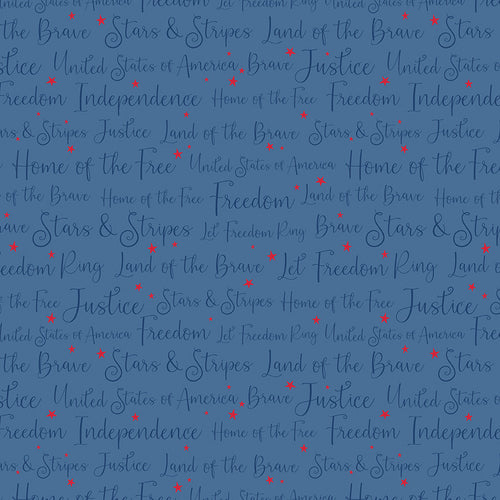 United States of America Home of the Brave United States of America
of the Brave Stars & Stripes Land of the Brave Stars
Justice United States of America Brave Justice United States of
Freedom Independence Home of the Free Freedom Independence
Stars & Stripes Justice Land of the Brave Stars & Stripes Justice Land
Home of the Free United States of America Home of the Free
of the Brave Home of the Free Freedom Land of the Brave Home of the Free
Brave Stars & Stripes Let Freedom Ring Stars & Stripes Let
Freedom Ring Land of the Brave Let Freedom Ring Land of
of the Free Justice Stars & Stripes Home of the Free Justice Stars
United States of America Freedom Let Freedom Ring United States of America Freedom
of the Brave Stars & Stripes Land of the Brave Stars
Justice United States of America Brave Justice United States of
Freedom Independence Home of the Free Freedom Independence
Stars & Stripes Justice Land of the Brave Stars & Stripes Justice Land